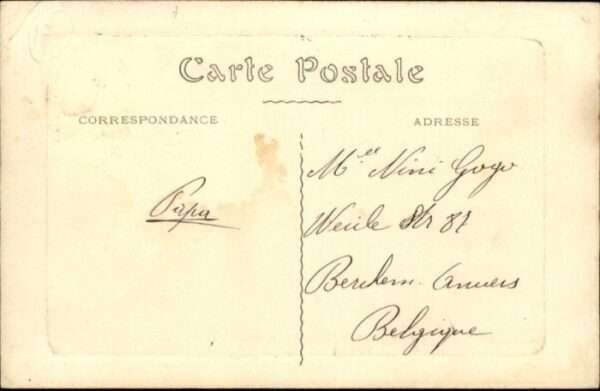 Carte Postale
CORRESPONDANCE
ADRESSE
Papa
Mlle Nini Gogo
Weile Str 87
Berchem. Anvers
Belgique